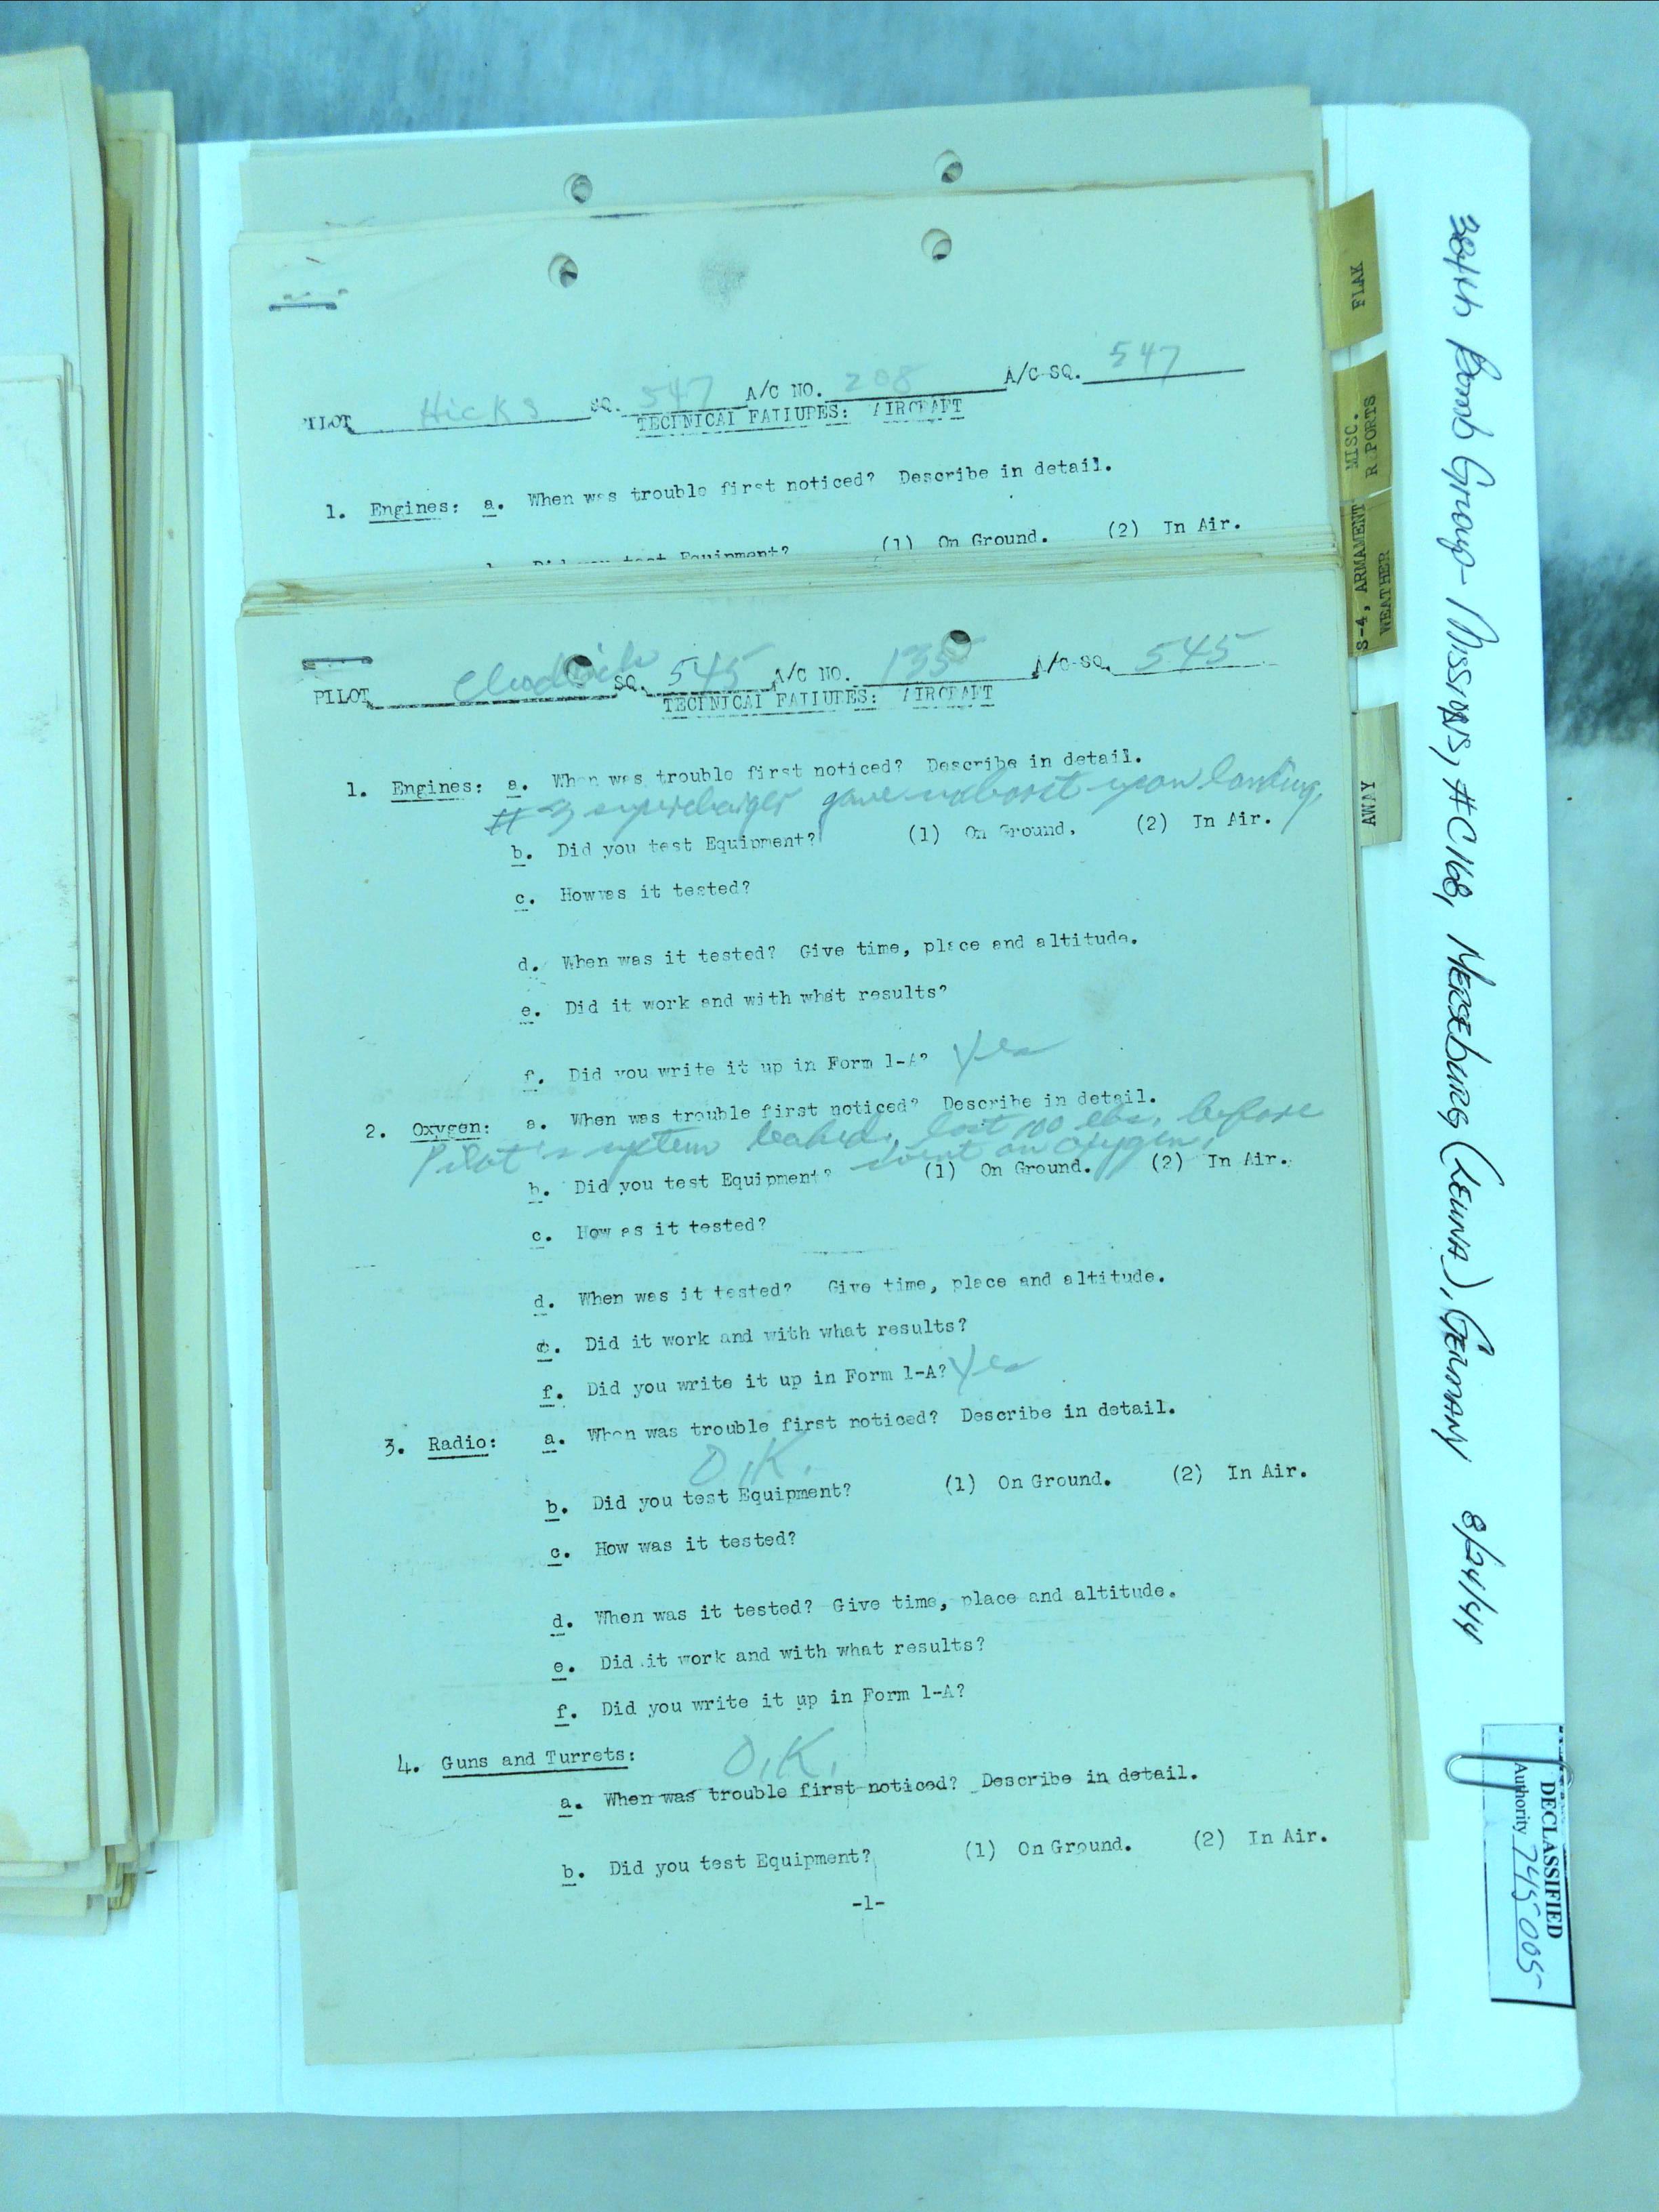 PILOT Hicks SQ. 547 A/C NO. 208 A/C SQ. 547
TECHNICAL FAILURES: AIRCRAFT
1. Engines: a. When was trouble first noticed? Describe in detail.
b. Did you test Equipment? (1) On Ground. (2) In Air.
PILOT SQ. 545 A/C NO. 135 A/C SQ. 545
TECHNICAL FAILURES: AIRCRAFT
1. Engines: a. When was trouble first noticed? Describe in detail.
#3 supercharger gave no boost upon landing.
b. Did you test Equipment? (1) On Ground. (2) In Air.
c. How was it tested?
d. When was it tested? Give time, place and altitude.
e. Did it work and with what results?
f. Did you write it up in Form 1-A? Yes
2. Oxygen: a. When was trouble first noticed? Describe in detail.
Pilot's system leaked, lost 100 lbs. before
went on oxygen.
b. Did you test Equipment? (1) On Ground. (2) In Air.
c. How as it tested?
d. When was it tested? Give time, place and altitude.
e. Did it work and with what results?
f. Did you write it up in Form 1-A? Yes
3. Radio: a. When was trouble first noticed? Describe in detail.
O.K.
b. Did you test Equipment? (1) On Ground. (2) In Air.
c. How was it tested?
d. When was it tested? Give time, place and altitude.
e. Did it work and with what results?
f. Did you write it up in Form 1-A?
4. Guns and Turrets: O.K.
a. When was trouble first noticed? Describe in detail.
b. Did you test Equipment? (1) On Ground. (2) In Air.
-1-
FLAK
MISC.
REPORTS
S-4, ARMAMENT
WEATHER
AWAY
384th Bomb Group - Missions, #C168, Merseburg (Leuna), Germany 8/24/44
DECLASSIFIED
Authority 745005